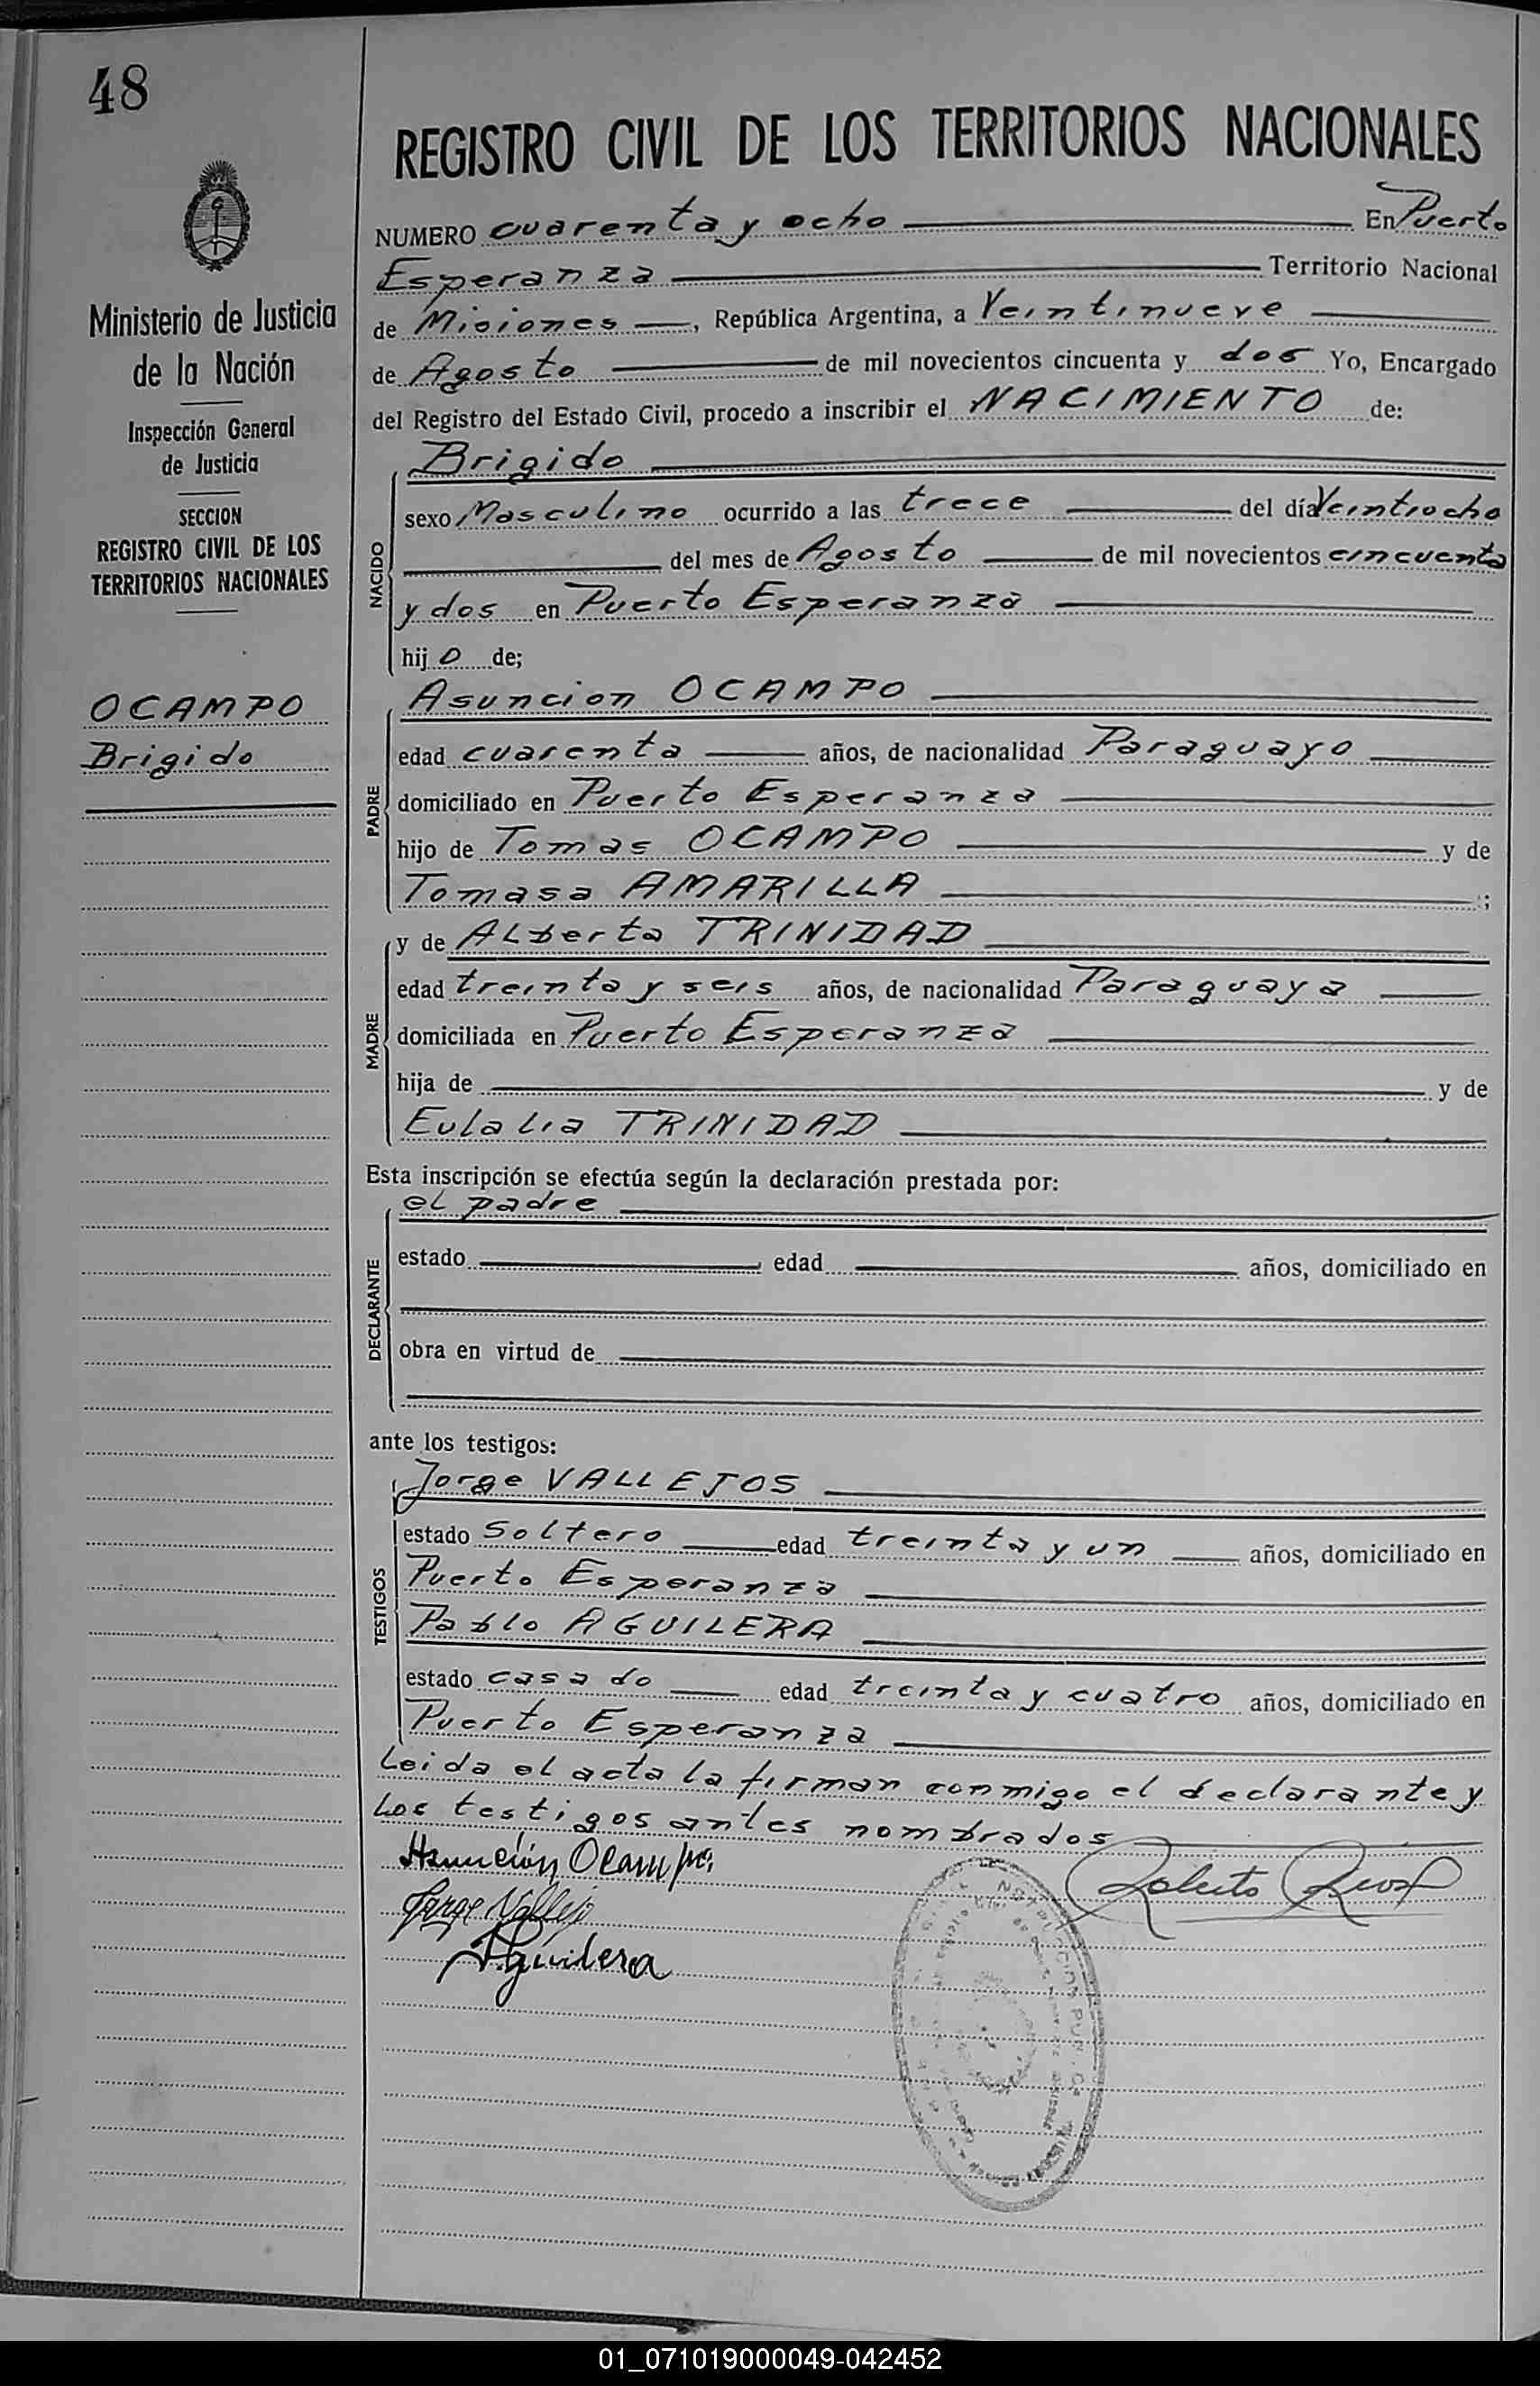 48
REGISTRO CIVIL DE LOS TERRITORIOS NACIONALES
Ministerio de Justicia
de la Nación
Inspección General
de Justicia
SECCION
REGISTRO CIVIL DE LOS
TERRITORIOS NACIONALES
OCAMPO
Brigido
NUMERO cuarenta y ocho En Puerto
Esperanza Territorio Nacional
de Misiones, República Argentina, a Veintinueve
de Agosto de mil novecientos cincuenta y dos Yo, Encargado
del Registro del Estado Civil, procedo a inscribir el NACIMIENTO de:
NACIDO
Brigido
sexo Masculino ocurrido a las trece del día Veintiocho
del mes de Agosto de mil novecientos cincuenta
y dos en Puerto Esperanza
hijo de;
PADRE
Asuncion OCAMPO
edad cuarenta años, de nacionalidad Paraguayo
domiciliado en Puerto Esperanza
hijo de Tomas OCAMPO y de
Tomasa AMARILLA ;
MADRE
y de Alberta TRINIDAD
edad treinta y seis años, de nacionalidad Paraguaya
domiciliada en Puerto Esperanza
hija de y de
Eulalia TRINIDAD
Esta inscripción se efectúa según la declaración prestada por:
DECLARANTE
el padre
estado edad años, domiciliado en
obra en virtud de
ante los testigos:
TESTIGOS
Jorge VALLEJOS
estado Soltero edad treinta y un años, domiciliado en
Puerto Esperanza
Pablo AGUILERA
estado casado edad treinta y cuatro años, domiciliado en
Puerto Esperanza
Leida el acta la firman conmigo el declarante y
los testigos antes nombrados
Asunción Ocampo
Jorge Vallejo
Aguilera
Roberto
01_071019000049-042452